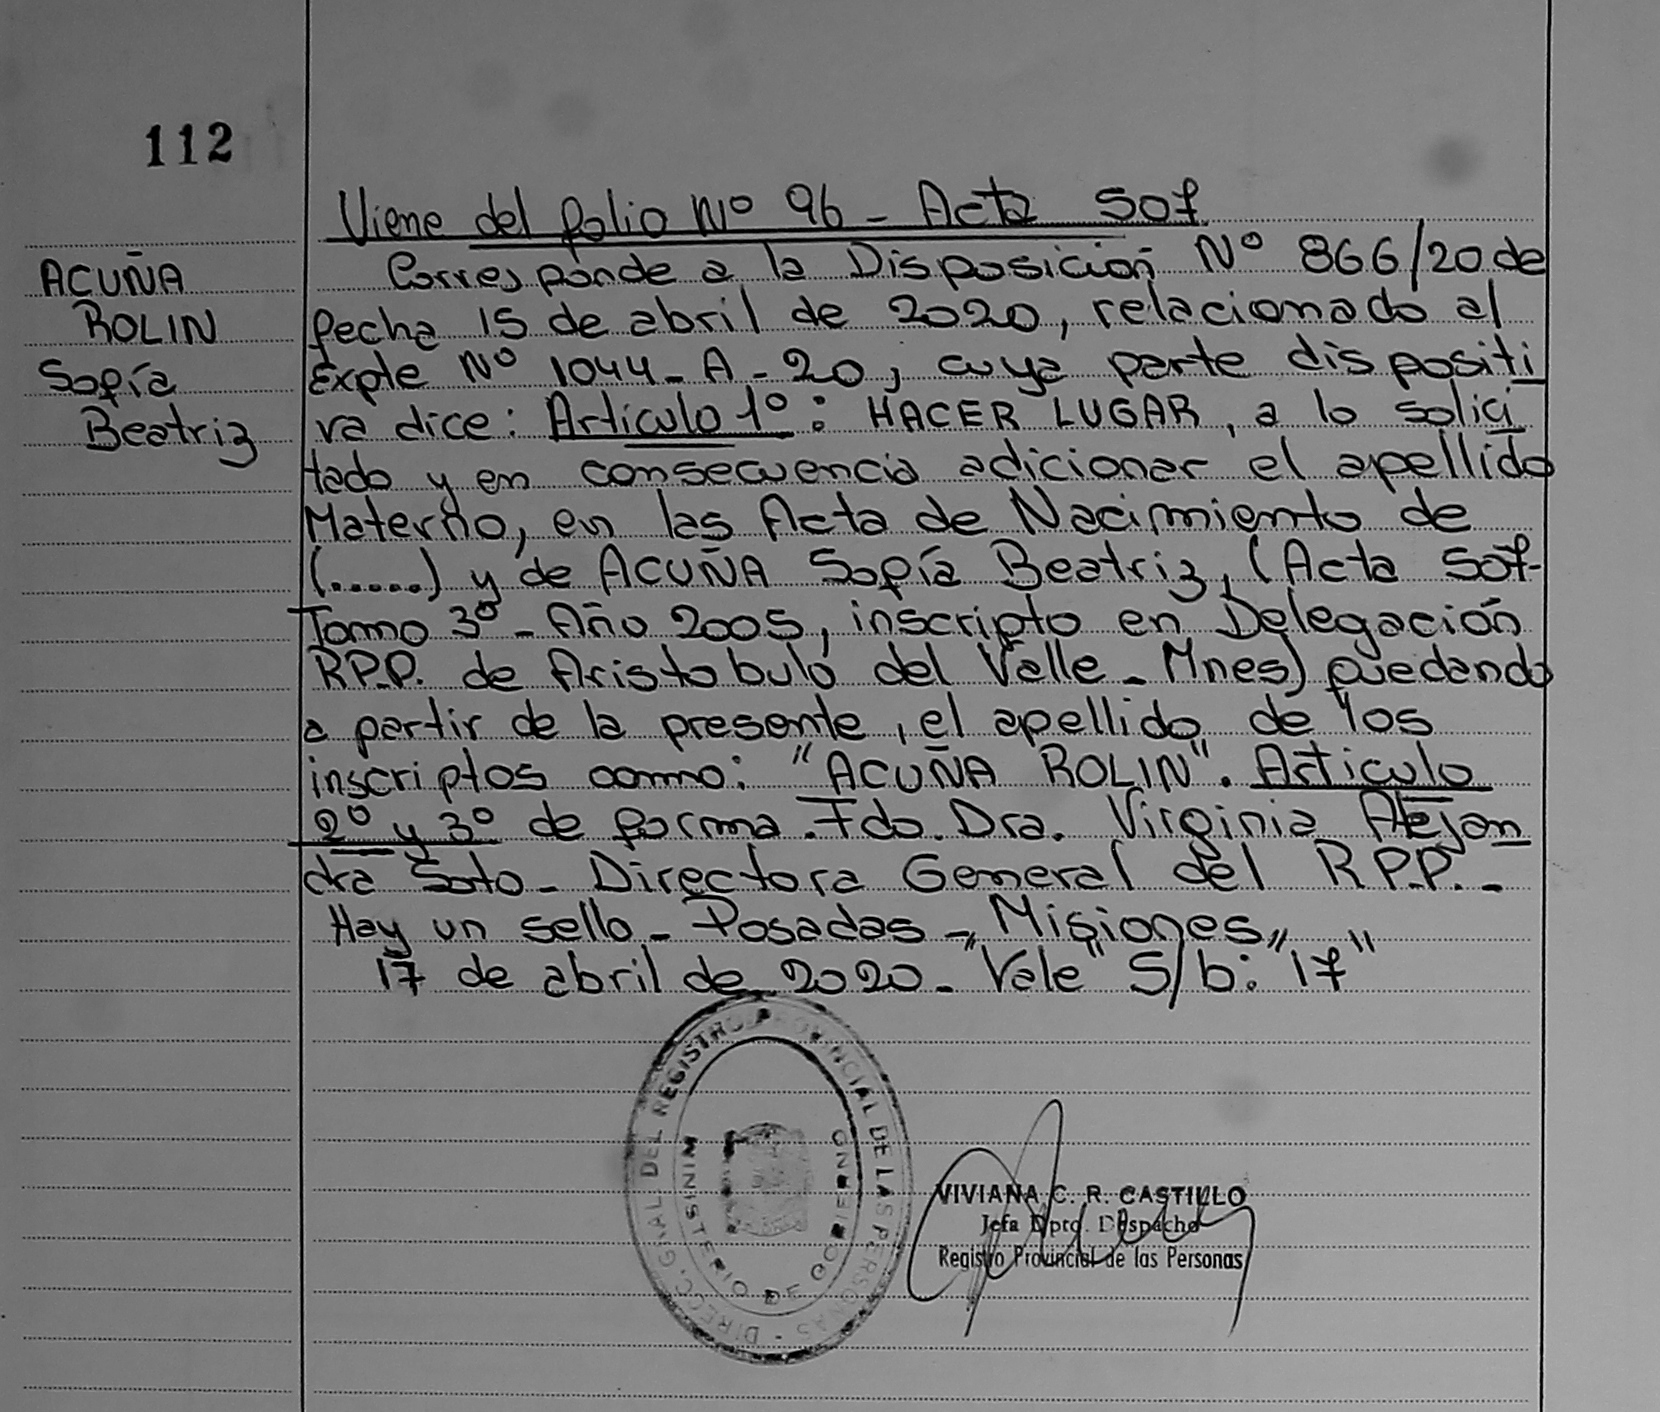 112
Viene del folio Nº 96 - Acta 507
ACUÑA
ROLIN
Sofía
Beatriz
Corresponde a la Disposición Nº 866/20 de
fecha 15 de abril de 2020, relacionado al
Expte Nº 1044-A-20, cuya parte dispositi
va dice: Articulo 1º: HACER LUGAR, a lo solici
tado y en consecuencia adicionar el apellido
Materno, en las Acta de Nacimiento de
(......) y de ACUÑA Sofía Beatriz, (Acta 507-
Tomo 3º - Año 2005, inscripto en Delegación
R.P.P. de Aristobulo del Valle - Mnes) quedando
a partir de la presente, el apellido de los
inscriptos como: "ACUÑA ROLIN". Articulo
2º y 3º de forma. Fdo. Dra. Virginia Alejan
dra Soto - Directora General del R.P.P. -
Hay un sello - Posadas - Misiones,,
17 de abril de 2020 - "Vale" S/b: "17"
DIRECC. GRAL DEL REGISTRO PROVINCIAL DE LAS PERSONAS -
MINISTERIO DE GOBIERNO
VIVIANA C. R. CASTILLO
Jefa Dpto. Despacho
Registro Provincial de las Personas